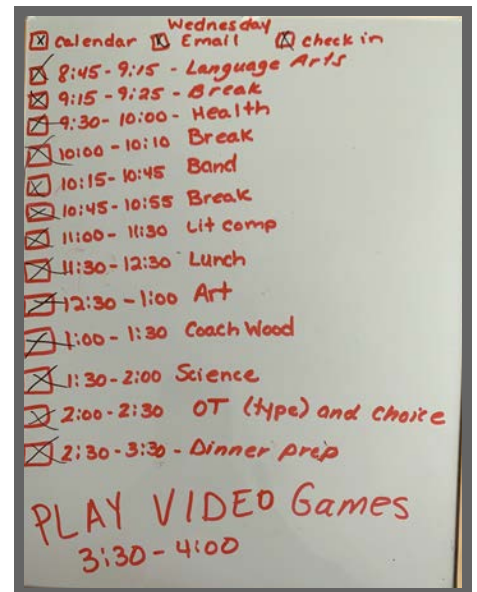 Wednesday
Calendar Email check in
8:45-9:15 - Language Arts
9:15-9:25 - Break
9:30-10:00- Health
10:00-10:10 Break
10:15-10:45 Band
10:45-10:55 Break
11:00-11:30 Lit comp
11:30-12:30 Lunch
12:30-1:00 Art
1:00-1:30 Coach Wood
1:30-2:00 Science
2:00-2:30 OT (type) and choice
2:30-3:30 - Dinner prep
PLAY VIDEO Games
3:30-4:00